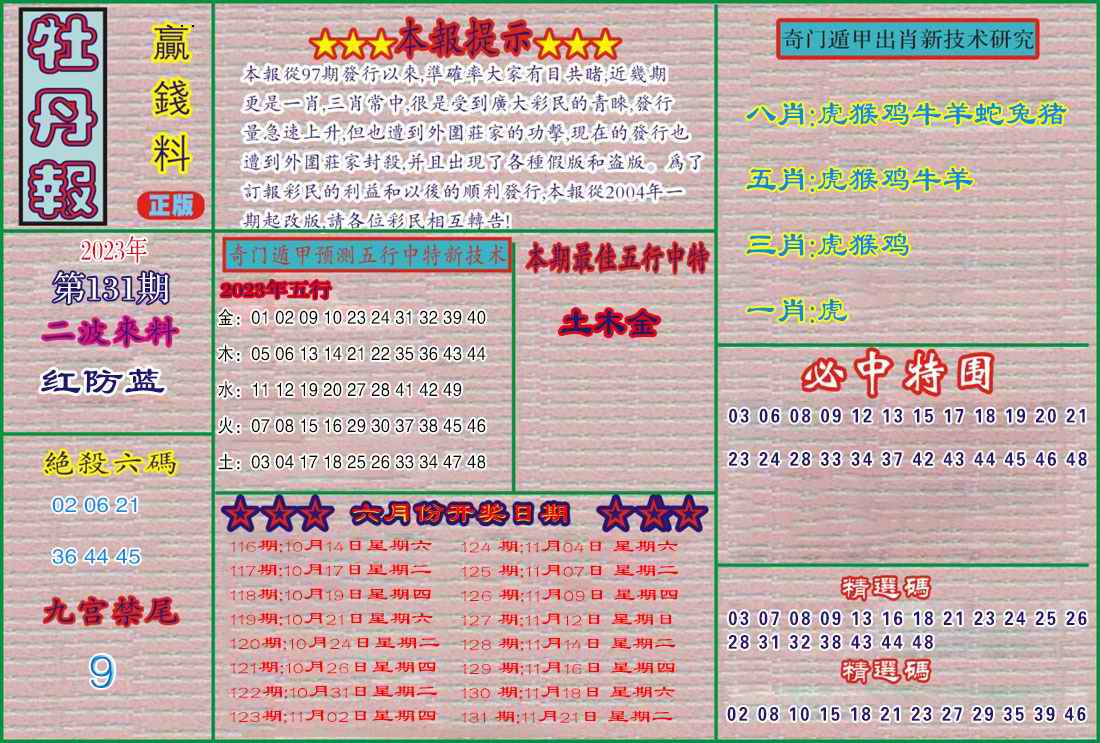 牡丹報
贏錢料
正版
★★★本報提示★★★
本報從97期發行以來,準確率大家有目共睹,近幾期
更是一肖,三肖常中,很是受到廣大彩民的青睞,發行
量急速上升,但也遭到外圍莊家的功擊,現在的發行也
遭到外圍莊家封殺,并且出現了各種假版和盗版。爲了
訂報彩民的利益和以後的順利發行,本報從2004年一
期起改版,請各位彩民相互轉告!
奇门遁甲出肖新技术研究
八肖:虎猴鸡牛羊蛇兔猪
五肖:虎猴鸡牛羊
三肖:虎猴鸡
一肖:虎
2023年
第131期
二波來料
红防蓝
奇门遁甲预测五行中特新技术
2023年五行
金：01 02 09 10 23 24 31 32 39 40
木：05 06 13 14 21 22 35 36 43 44
水：11 12 19 20 27 28 41 42 49
火：07 08 15 16 29 30 37 38 45 46
土：03 04 17 18 25 26 33 34 47 48
本期最佳五行中特
土木金
必中特围
03 06 08 09 12 13 15 17 18 19 20 21
23 24 28 33 34 37 42 43 44 45 46 48
絕殺六碼
02 06 21
36 44 45
九宫禁尾
9
六月份开奖日期
116期:10月14日星期六
117期:10月17日星期二
118期:10月19日星期四
119期:10月21日星期六
120期:10月24日星期二
121期:10月26日星期四
122期:10月31日星期二
123期:11月02日星期四
124 期:11月04日 星期六
125 期:11月07日 星期二
126 期:11月09日 星期四
127 期:11月12日 星期日
128 期:11月14日 星期二
129 期:11月16日 星期四
130 期:11月18日 星期六
131 期:11月21日 星期二
精選碼
03 07 08 09 13 16 18 21 23 24 25 26
28 31 32 38 43 44 48
精選碼
02 08 10 15 18 21 23 27 29 35 39 46